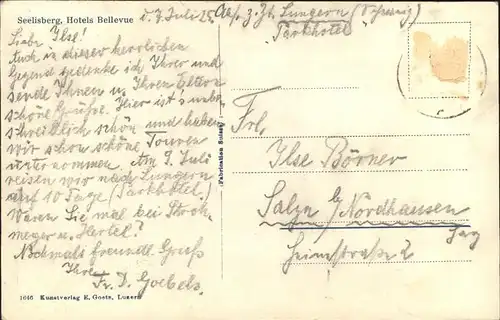 Seelisberg, Hotels Bellevue
d. 7. Juli 25.
Abs. z. Zt. Lungern (Schweiz)
"Parkhotel"
Liebe Ilse!
Auch in dieser herrlichen
Gegend gedenke ich Ihrer und
sende Ihnen u. Ihren Eltern
schöne Grüße. Hier ist's unbe-
schreiblich schön und haben
wir schon schöne Touren
unternommen. Am 9. Juli
reisen wir nach Lungern
auf 10 Tage (Parkhotel.)
Waren Sie mal bei Stroh-
meyer u. Hertel?
Nochmals freundl. Gruß
Ihre
Fr. D. Goebels.
1046 Kunstverlag E. Goetz, Luzern
(Fabrication Suisse)
Frl.
Ilse Börner
Salza b/Nordhausen
Heimstraße 2